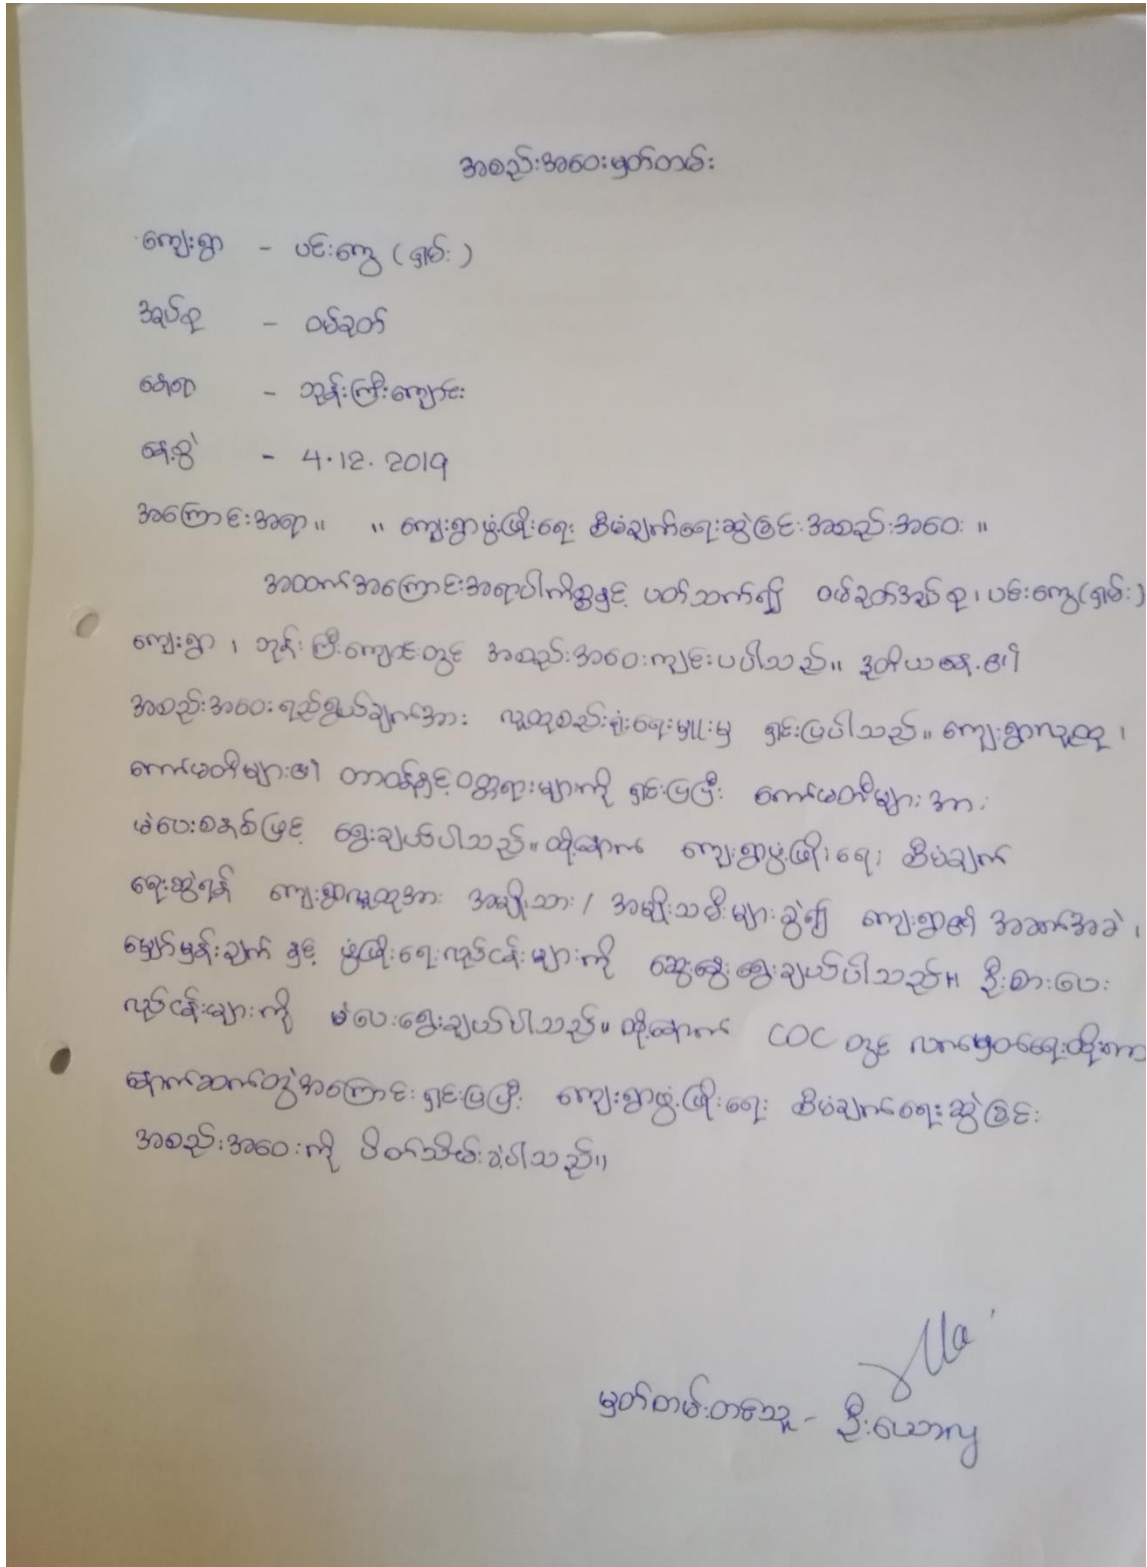 အစည်းအဝေးမှတ်တမ်း
ကျေးရွာ - ပင်းကွေ (ရှမ်း)
အုပ်စု - ဝမ်ခုတ်
နေရာ - ဘုန်းကြီးကျောင်း
နေ့စွဲ - 4.12.2019
အကြောင်းအရာ။ ။ ကျေးရွာဖွံ့ဖြိုးရေး စီမံချက်ရေးဆွဲခြင်းအစည်းအဝေး ။
အထက်အကြောင်းအရာပါကိစ္စနှင့် ပတ်သက်၍ ဝမ်ခုတ်အုပ်စု၊ ပင်းကွေ(ရှမ်း)
ကျေးရွာ ၊ ဘုန်းကြီးကျောင်းတွင် အစည်းအဝေးကျင်းပပါသည်။ ဒုတိယနေ့၏
အစည်းအဝေးရည်ရွယ်ချက်အား လူထုစည်းရုံးရေးမှူးမှ ရှင်းပြပါသည်။ ကျေးရွာလူထု ၊
ကော်မတီများ၏ တာဝန်နှင့်ဝတ္တရားများကို ရှင်းပြပြီး ကော်မတီများအား
မဲပေးစနစ်ဖြင့် ရွေးချယ်ပါသည်။ ထို့နောက် ကျေးရွာဖွံ့ဖြိုးရေး စီမံချက်
ရေးဆွဲရန် ကျေးရွာလူထုအား အမျိုးသား / အမျိုးသမီးများခွဲ၍ ကျေးရွာ၏ အခက်အခဲ ၊
မျှော်မှန်းချက် နှင့် ဖွံ့ဖြိုးရေးလုပ်ငန်းများကို ဆွေးနွေးရွေးချယ်ပါသည်။ ဦးစားပေး
လုပ်ငန်းများကို မဲပေးရွေးချယ်ပါသည်။ ထို့နောက် COC တွင် လက်မှတ်ရေးထိုးကာ
နောက်ဆက်တွဲအကြောင်းရှင်းပြပြီး ကျေးရွာဖွံ့ဖြိုးရေး စီမံချက်ရေးဆွဲခြင်း
အစည်းအဝေးကို ပိတ်သိမ်းခဲ့ပါသည်။
မှတ်တမ်းတင်သူ - ဦးယောလု